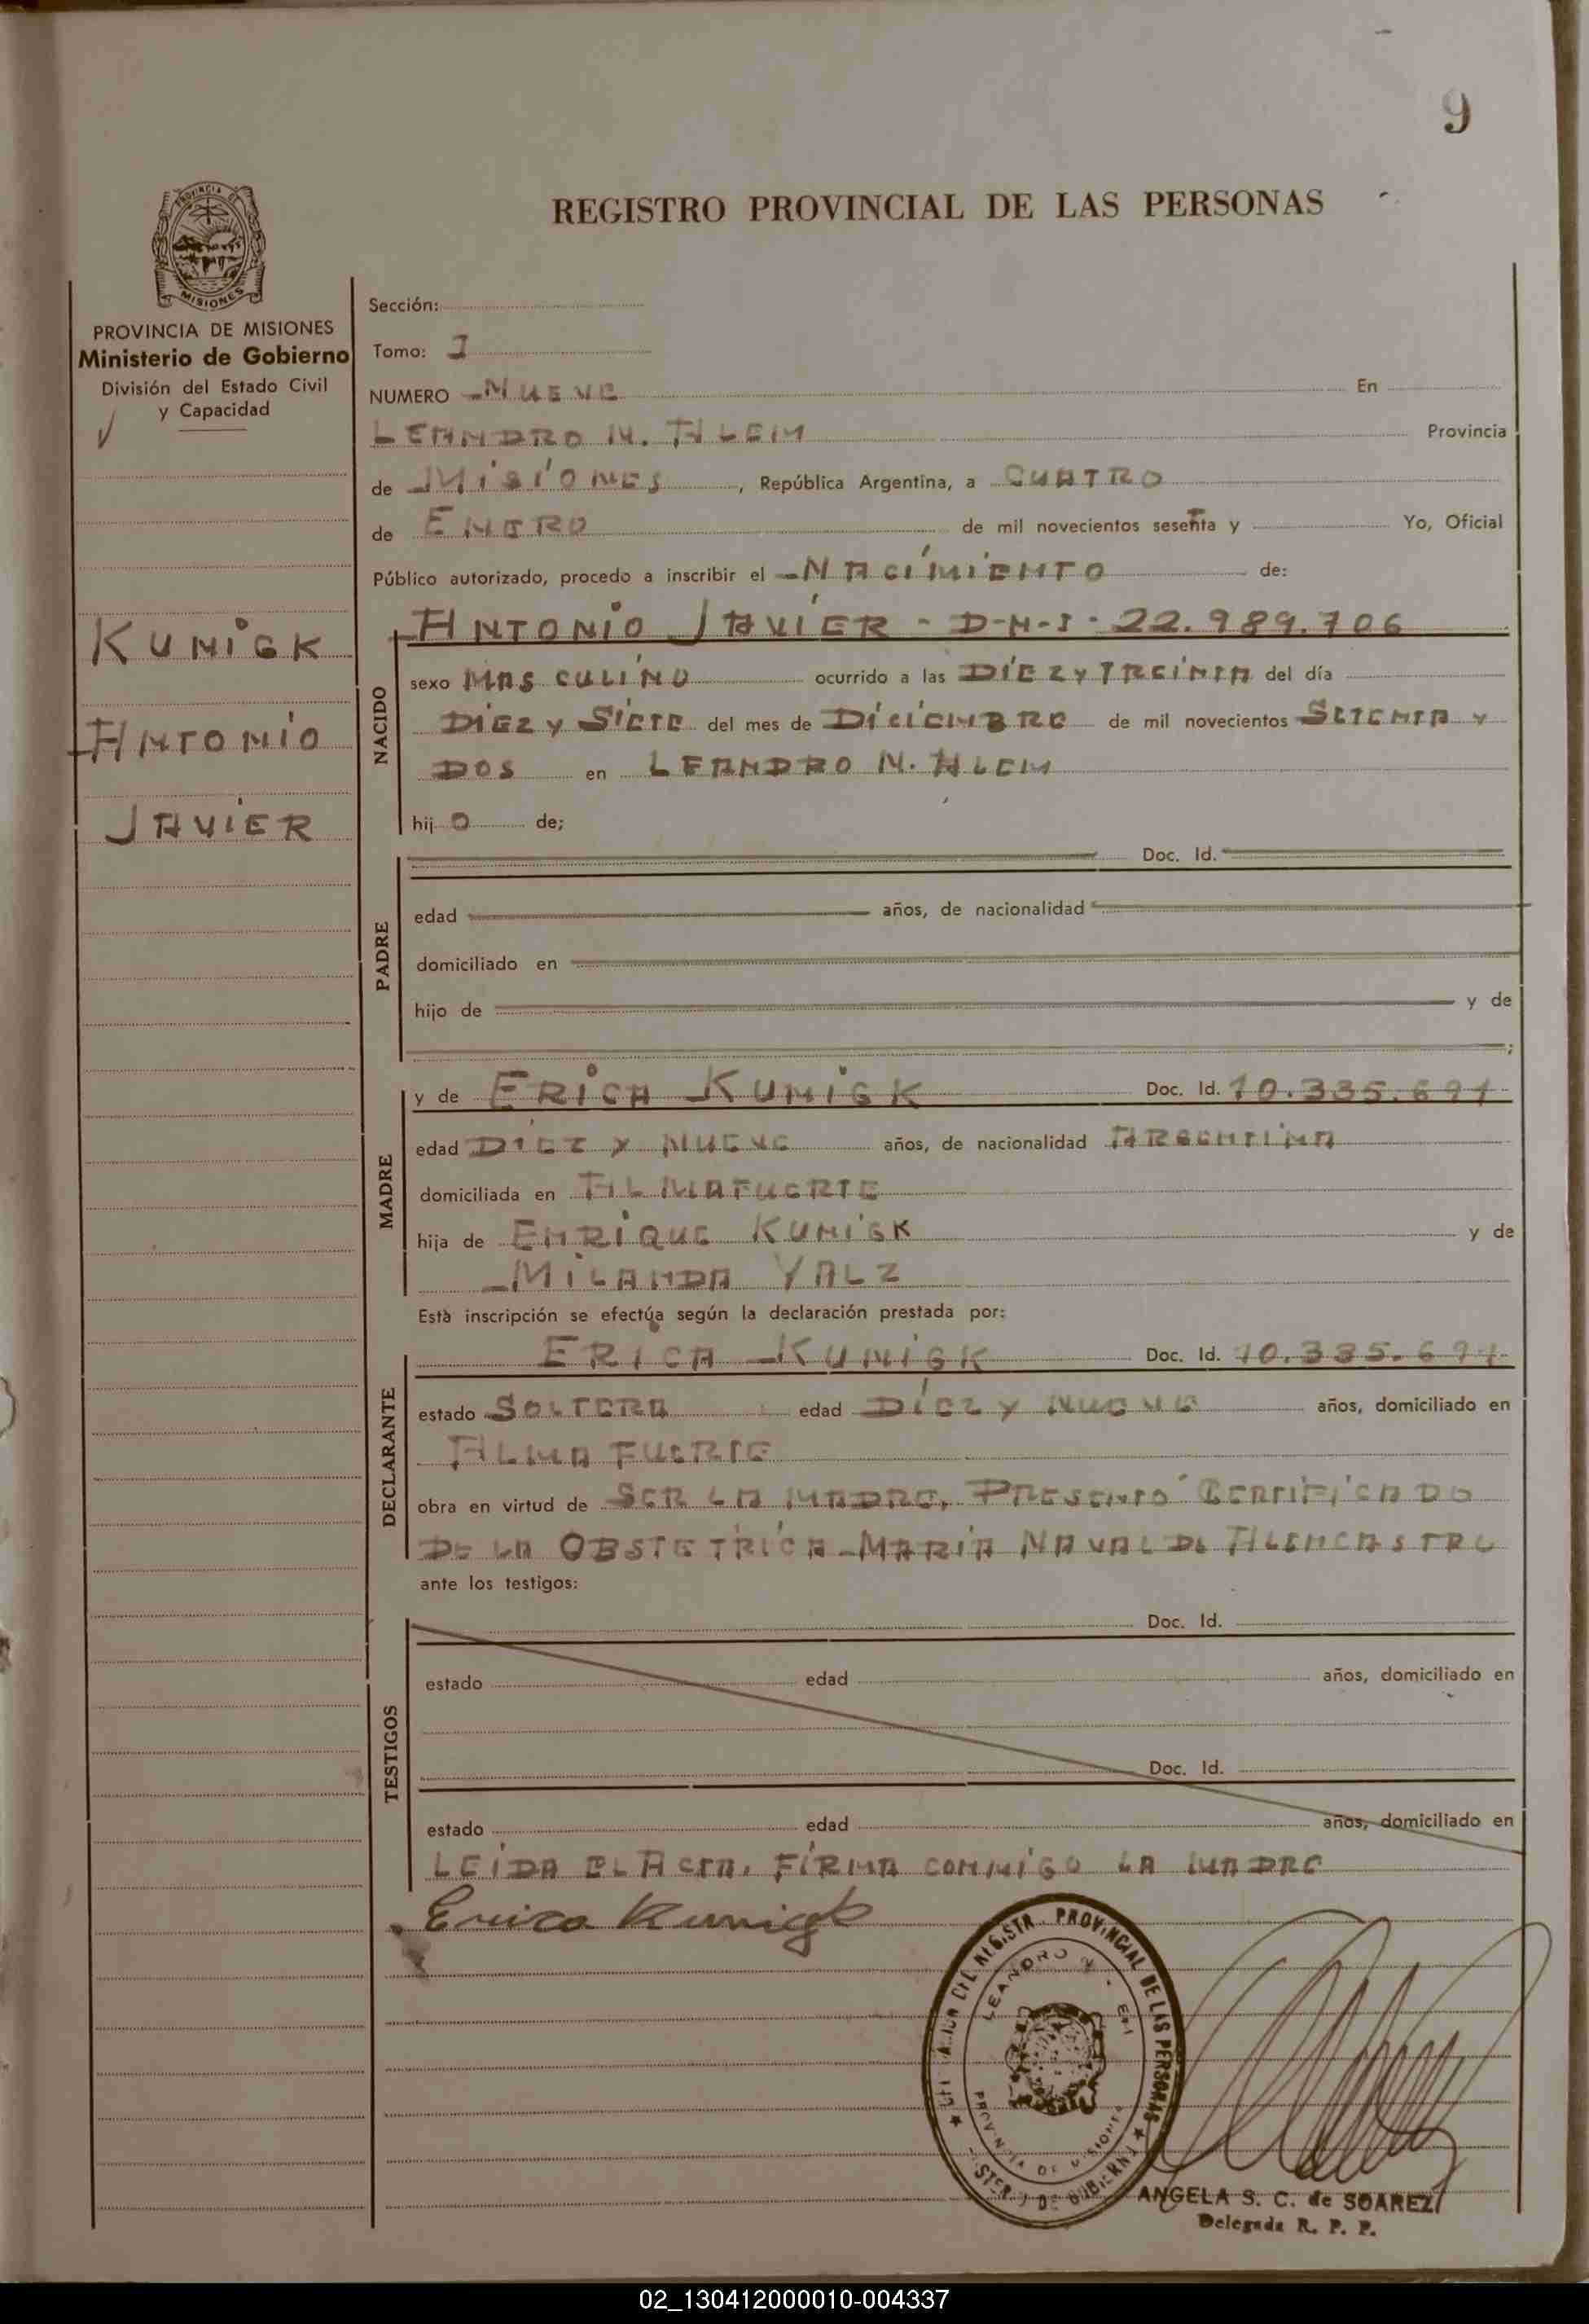 9
PROVINCIA DE
MISIONES
REGISTRO PROVINCIAL DE LAS PERSONAS
PROVINCIA DE MISIONES
Ministerio de Gobierno
División del Estado Civil
y Capacidad
KUNIGK
ANTONIO
JAVIER
Sección:
Tomo: I
NUMERO NUEVE En
LEANDRO N. ALEM Provincia
de MISIONES, República Argentina, a CUATRO
de ENERO de mil novecientos sesenta y Yo, Oficial
Público autorizado, procedo a inscribir el NACIMIENTO de:
NACIDO
ANTONIO JAVIER - D-N-I - 22.989.706
sexo MASCULINO ocurrido a las DIEZ y TREINTA del día
DIEZ y SIETE del mes de DICIEMBRE de mil novecientos SETENTA y
DOS en LEANDRO N. ALEM
hij O de;
PADRE
Doc. Id.
edad años, de nacionalidad
domiciliado en
hijo de y de
;
MADRE
y de ERICA KUNIGK Doc. Id. 10.335.691
edad DIEZ y NUEVE años, de nacionalidad ARGENTINA
domiciliada en ALMAFUERTE
hija de ENRIQUE KUNIGK y de
MILANDA YALZ
Està inscripción se efectúa según la declaración prestada por:
DECLARANTE
ERICA KUNIGK Doc. Id. 10.335.691
estado SOLTERA edad DIEZ y NUEVE años, domiciliado en
ALMA FUERTE
obra en virtud de SER LA MADRE, PRESENTÓ CERTIFICADO
DE LA OBSTETRICA MARIA NAVAL DE ALENCASTRO
ante los testigos:
TESTIGOS
Doc. Id.
estado edad años, domiciliado en
Doc. Id.
estado edad años, domiciliado en
LEIDA EL ACTA, FIRMA CONMIGO LA MADRE
Erica Kunigk
REGISTR PROVINCIAL DE LAS PERSONAS
LEANDRO N.
PROVINCIA DE MISIONES
DE GOBIERNO
ANGELA S. C. de SOAREZ
Delegada R. P. P.
02_130412000010-004337